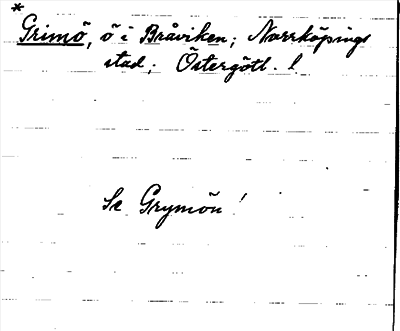 * Grimö, ö i Bråviken; Norrköpings
stad; Östergötl. l.
Se Grymön!